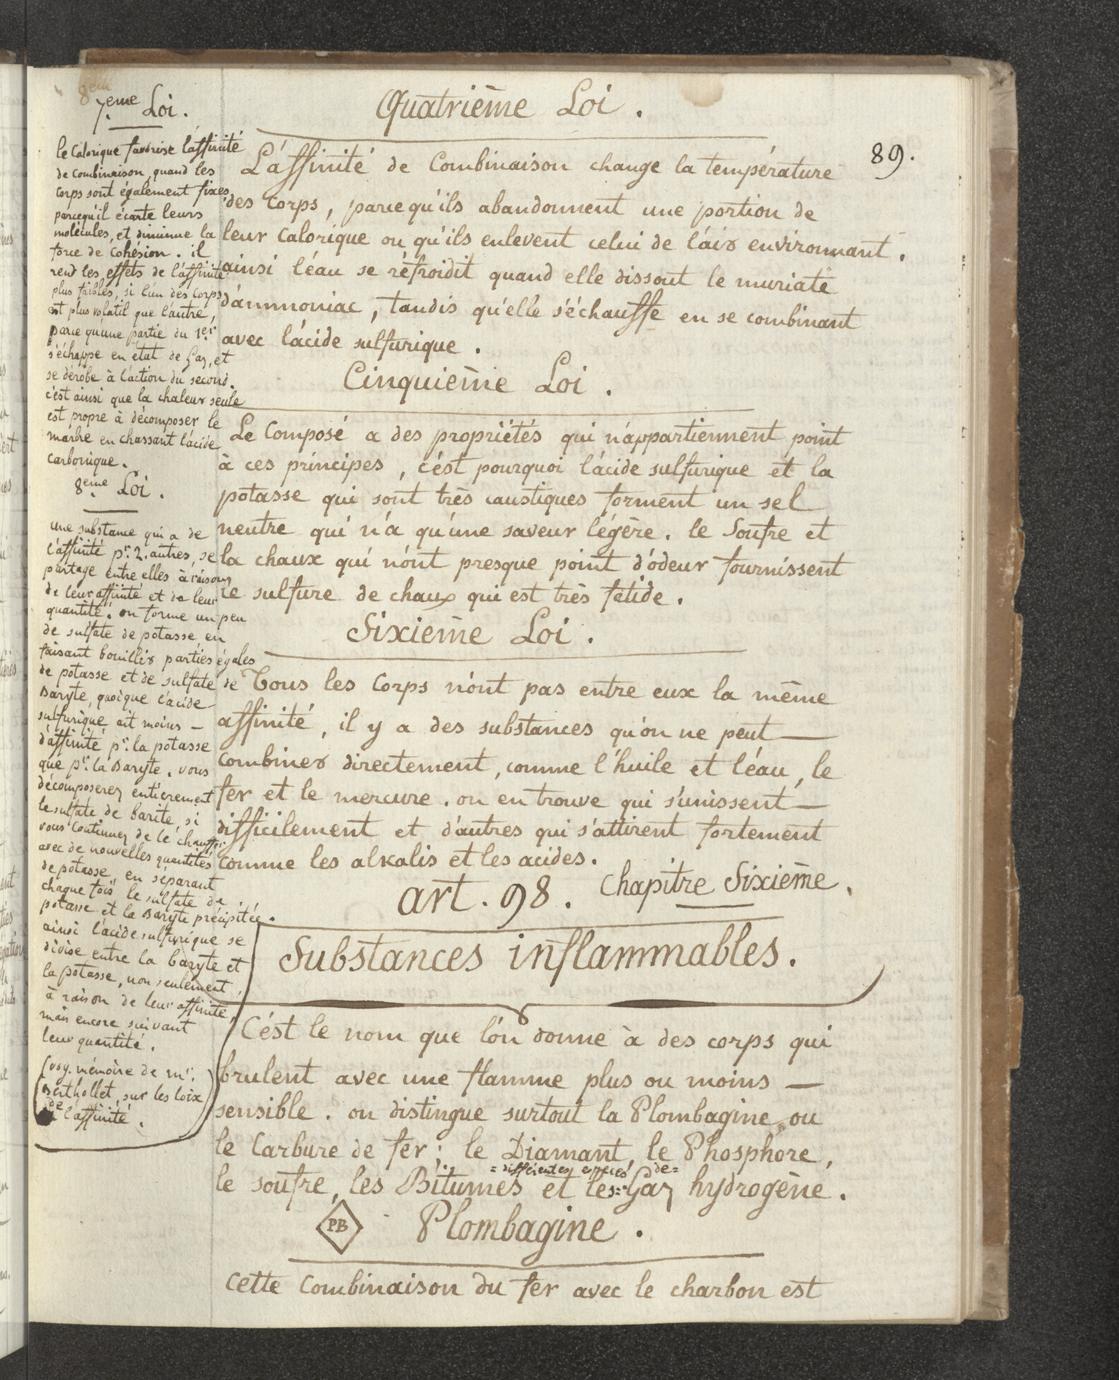 89.
Quatrième Loi.
L'affinité de Combinaison change la température
des corps, parcequ'ils abandonnent une portion de
leur calorique ou qu'ils enlevent celui de l'air environnant.
ainsi l'eau se réfroidit quand elle dissout le muriate
d'ammoniac, tandis qu'elle s'échauffe en se combinant
avec l'acide sulfurique.
Cinquième Loi.
Le Composé a des propriétés qui n'appartiennent point
à ces principes, c'est pourquoi l'acide sulfurique et la
potasse qui sont très caustiques forment un sel
neutre qui n'a qu'une saveur légère. le Soufre et
la chaux qui n'ont presque point d'odeur fournissent
le sulfure de chaux qui est très fétide.
Sixième Loi.
Tous les Corps n'ont pas entre eux la même
affinité, il y a des substances qu'on ne peut —
combiner directement, comme l'huile et l'eau, le
fer et le mercure. on en trouve qui s'unissent —
difficilement et d'autres qui s'attirent fortement
comme les alkalis et les acides.
art. 98. Chapitre Sixième.
Substances inflammables.
C'est le nom que l'on donne à des corps qui
brulent avec une flamme plus ou moins —
sensible. on distingue surtout la Plombagine ou
le Carbure de fer; le Diamant, le Phosphore,
=différentes espèces de=
le soufre, les Bitumes et les=Gaz hydrogène.
PB Plombagine.
cette Combinaison du fer avec le charbon est
8em
7.eme Loi.
le Calorique favorise l'affinité
de combinaison, quand les
corps sont également fixes,
parcequ'il écarte leurs
molécules, et diminue la
force de cohésion. il
rend les effets de l'affinité
plus faibles, si l'un des corps
est plus volatil que l'autre,
parce qu'une partie du 1.er
s'échappe en état de Gaz, et
se dérobe à l'action du second.
c'est ainsi que la chaleur seule
est propre à décomposer le
marbre en chassant l'acide
carbonique.
8.eme Loi.
une substance qui a de
l'affinité pr. 2. autres, se
partage entre elles à raison
de leur affinité et de leur
quantité. on forme un peu
de sulfate de potasse, en
faisant bouillir parties égales
de potasse et de sulfate de
Baryte, quoique l'acide
sulfurique ait moins —
d'affinité pr. la potasse
que pr. la Baryte. vous
décomposerez entièrement
le sulfate de barite, si
vous continuez de le chauffer
avec de nouvelles quantités
de potasse, en séparant
chaque fois le sulfate de
potasse et la Baryte précipitée.
ainsi l'acide sulfurique se
divise entre la baryte et
la potasse, non seulement
à raison de leur affinité,
mais encore suivant
leur quantité.
(voy. mémoire de mr.
Berthollet, sur les loix
de l'affinité.